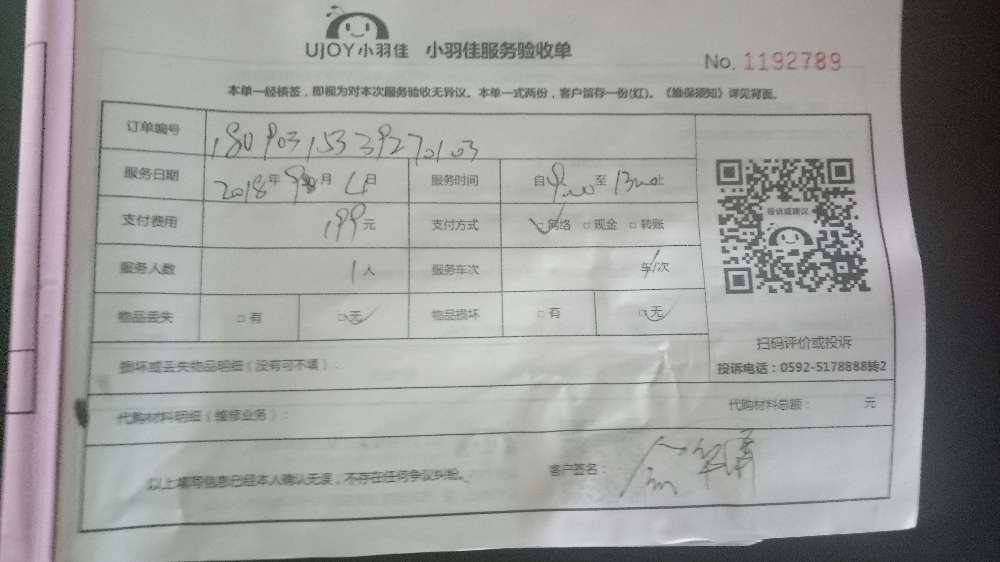 UJOY小羽佳 小羽佳服务验收单
No. 1192789
本单一经核签，即视为对本次服务验收无异议。本单一式两份，客户留存一份(红)。《维保须知》详见背面。
订单编号 18090315339270103
服务日期 2018年9月4日 服务时间 自9:00至13:00止
支付费用 199元 支付方式 ☑网络 □现金 □转账
投诉或建议
服务人数 1人 服务车次 车/次
物品丢失 □有 ☑无 物品损坏 □有 ☑无
扫码评价或投诉
损坏或丢失物品明细（没有可不填）：
投诉电话：0592-5178888转2
代购材料明细（维修业务）： 代购材料总额： 元
以上填写信息已经本人确认无误，不存在任何争议纠纷。 客户签名：